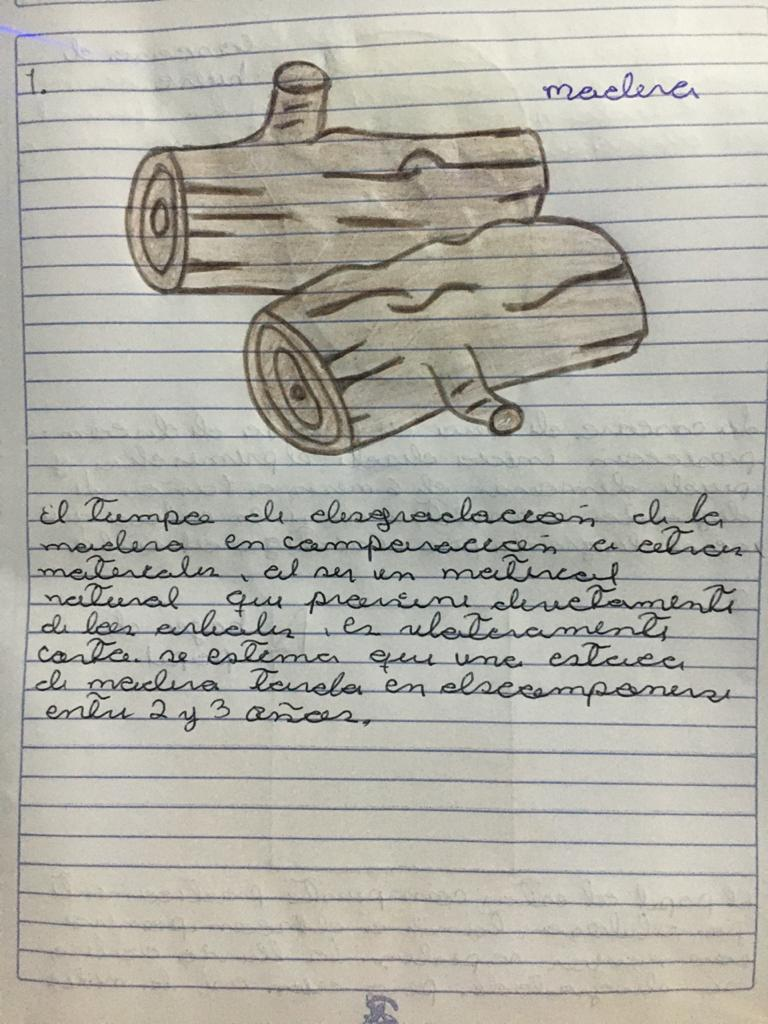 1.
madera
El tiempo de desgradación de la
madera en comparación a otros
materiales, al ser un material
natural que proviene directamente
de los arboles, es relativamente
corto. se estima que una estaca
de madera tarda en descomponerse
entre 2 y 3 años.